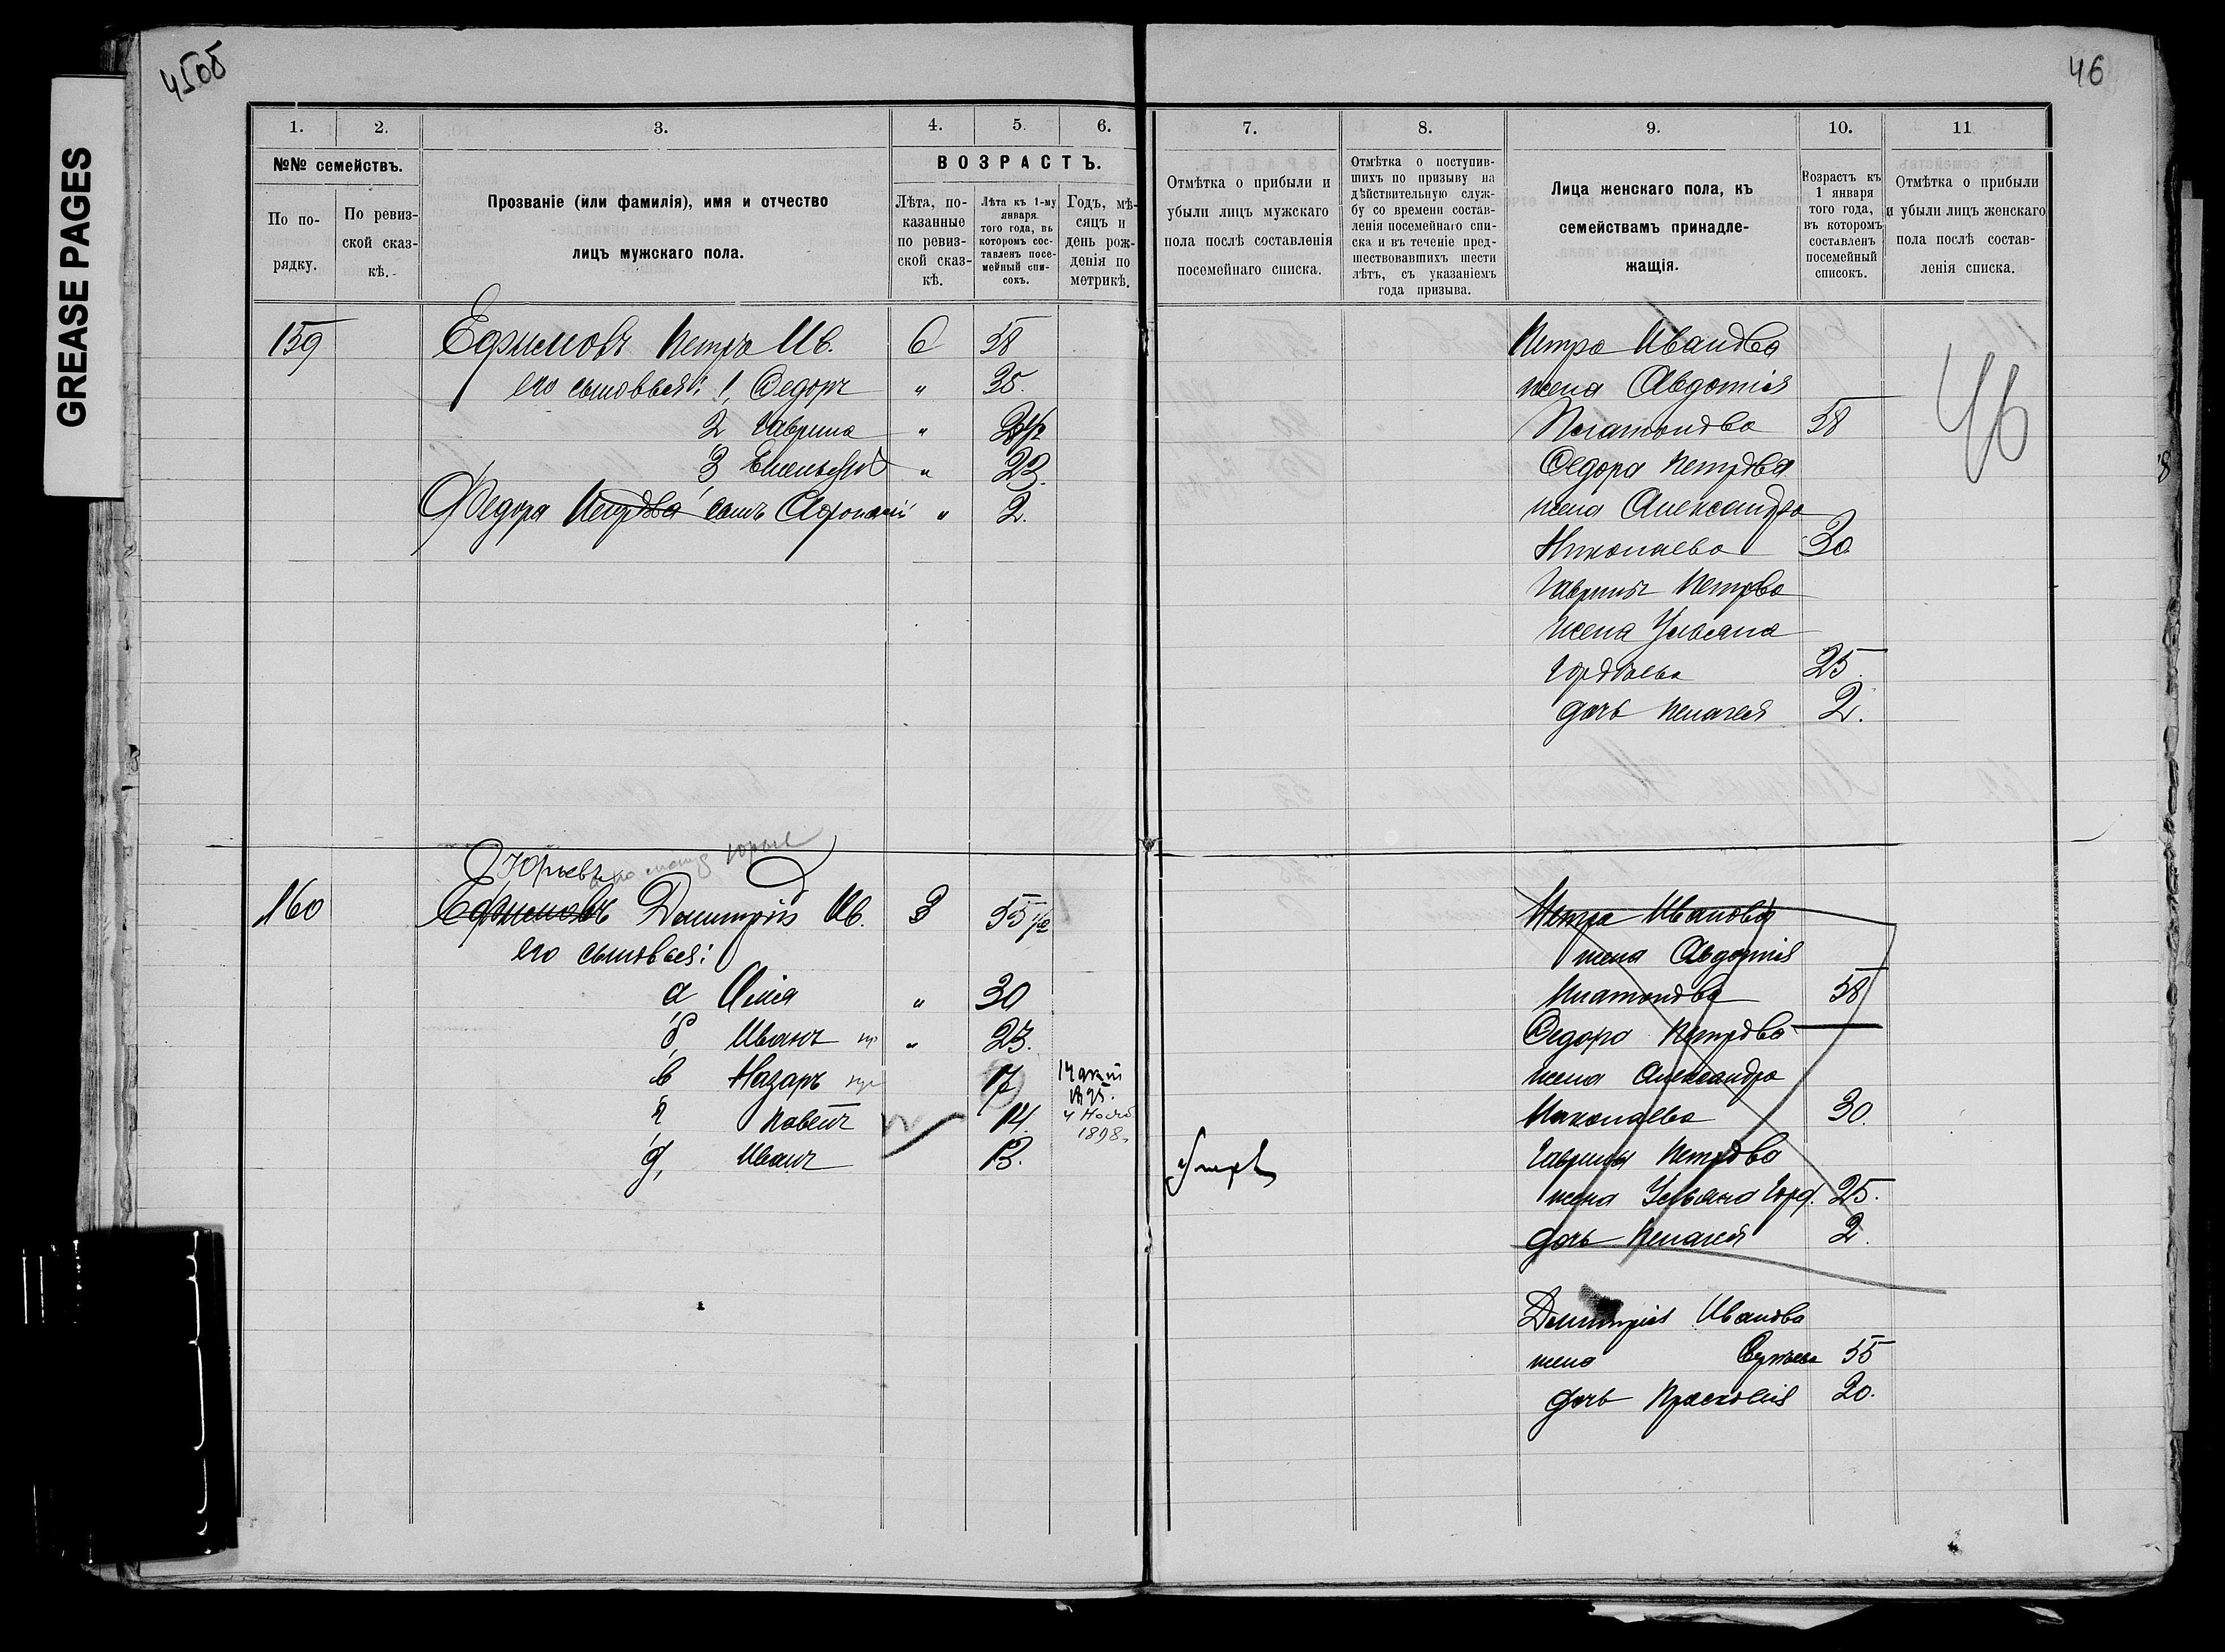 GREASE PAGES
45об
46
1.
2.
3.
4.
5.
6.
№№ семействъ.
По по-
рядку.
По ревиз-
ской сказ-
кѣ.
Прозваніе (или фамилія), имя и отчество
лицъ мужскаго пола.
ВОЗРАСТЪ.
Лѣта, по-
казанные
по ревиз-
ской сказ-
кѣ.
Лѣта къ 1-му
января
того года, въ
которомъ сос-
тавленъ посе-
мейный спи-
сокъ.
Годъ, мѣ-
сяцъ и
день рож-
денія по
метрикѣ.
7.
8.
9.
10.
11
Отмѣтка о прибыли и
убыли лицъ мужскаго
пола послѣ составленія
посемейнаго списка.
Отмѣтка о поступив-
шихъ по призыву на
дѣйствительную служ-
бу со времени состав-
ленія посемейнаго спи-
ска и въ теченіе пред-
шествовавшихъ шести
лѣтъ, съ указаніемъ
года призыва.
Лица женскаго пола, къ
семействамъ принадле-
жащія.
Возрастъ къ
1 января
того года,
въ которомъ
составленъ
посемейный
списокъ.
Отмѣтка о прибыли
и убыли лицъ женскаго
пола послѣ состав-
ленія списка.
159 Ефимовъ Петръ Ив. 6 58
его сыновья: 1, Федоръ " 35.
2 Гаврила "
3 " 22.
Федора Петрова сынъ Афонасій " 2.
Петра Иванова
жена Авдотія
Платонова 58
Федора Петрова
жена Александра
Николаева 30
Гаврилы Петрова
жена Ульяна
Гордѣева 25.
дочь Пелагея 2.
46
Юрьевъ
160 Ефимовъ Димитрій Ив. 3 55 1/2
его сыновья:
а, Илія " 30
б, Иванъ " 23.
в Назаръ 17
1895.
г, Павелъ 14.
1898.
д, Иванъ 13.
Умеръ
Петра Иванова
жена Авдотія
Платонова 58
Федора Петрова
жена Александра
Николаева 30.
Гаврилы Петрова
жена Ульяна Горд. 25.
дочь Пелагея 2.
Димитрія Иванова
жена 55
дочь Прасковія 20.